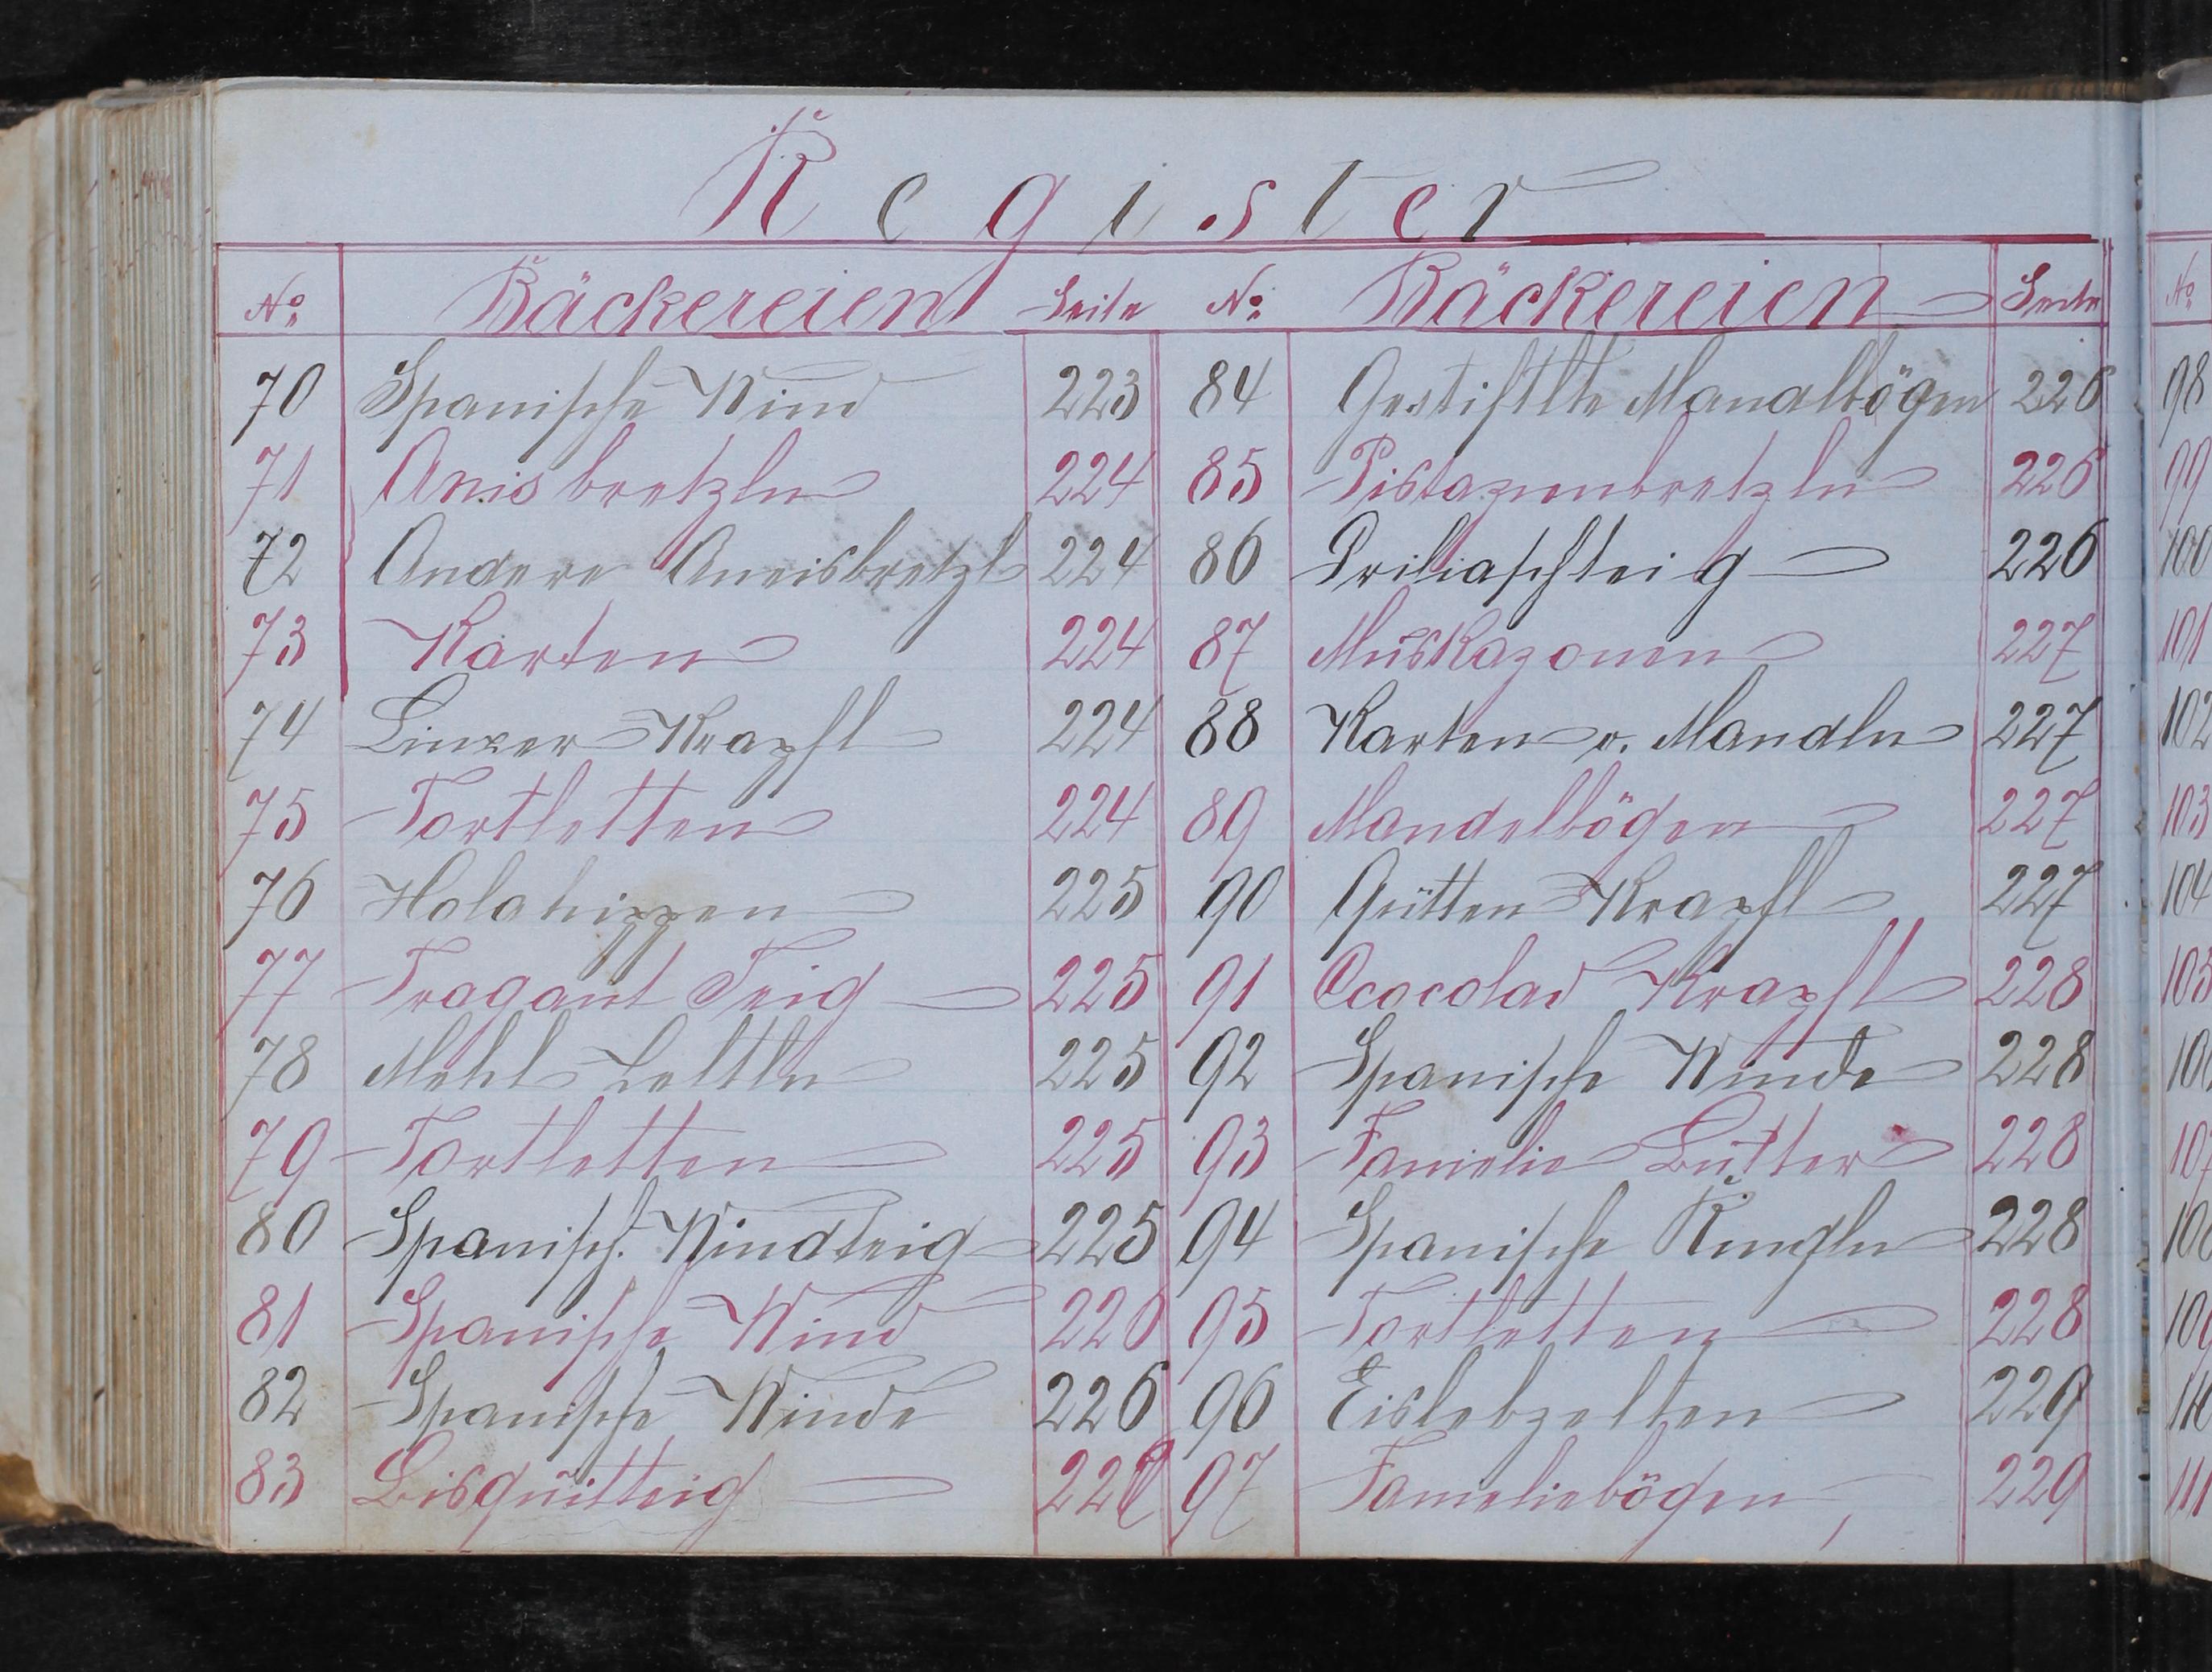 Register
No. Bäckereien Seite No. Bäckereien Seite No.
70 Spanische Wind 223 84 Gestiftlte Manalbögen 226 98
71 Anis bretzln 224 85 Pistazienbretzln 226 99
72 Andere Aneisbretzl 224 86 Priliaschteig 226 100
73 Karten 224 87 Muskazonen 227 101
74 Linzer Krapfl 224 88 Karten v. Mandln 227 102
75 Tortletten 224 89 Mandelbögen 227 103
76 Holahippen 225 90 Gütten Krapfl 227 104
77 Tragant Teig 225 91 Krapfl 228 105
78 Mehl Zeltln 225 92 Spanische Winde 228
79 Tortletten 225 93 Famielie Butter 228
80 Spanisch. Windteig 225 94 Spanische Ringln 228
81 Spanische Wind 226 95 Tortletten 228
82 Spanische Winde 226 96 Eislebzelten 229
83 Bisquitteig 97 Fameliebögen 229 111